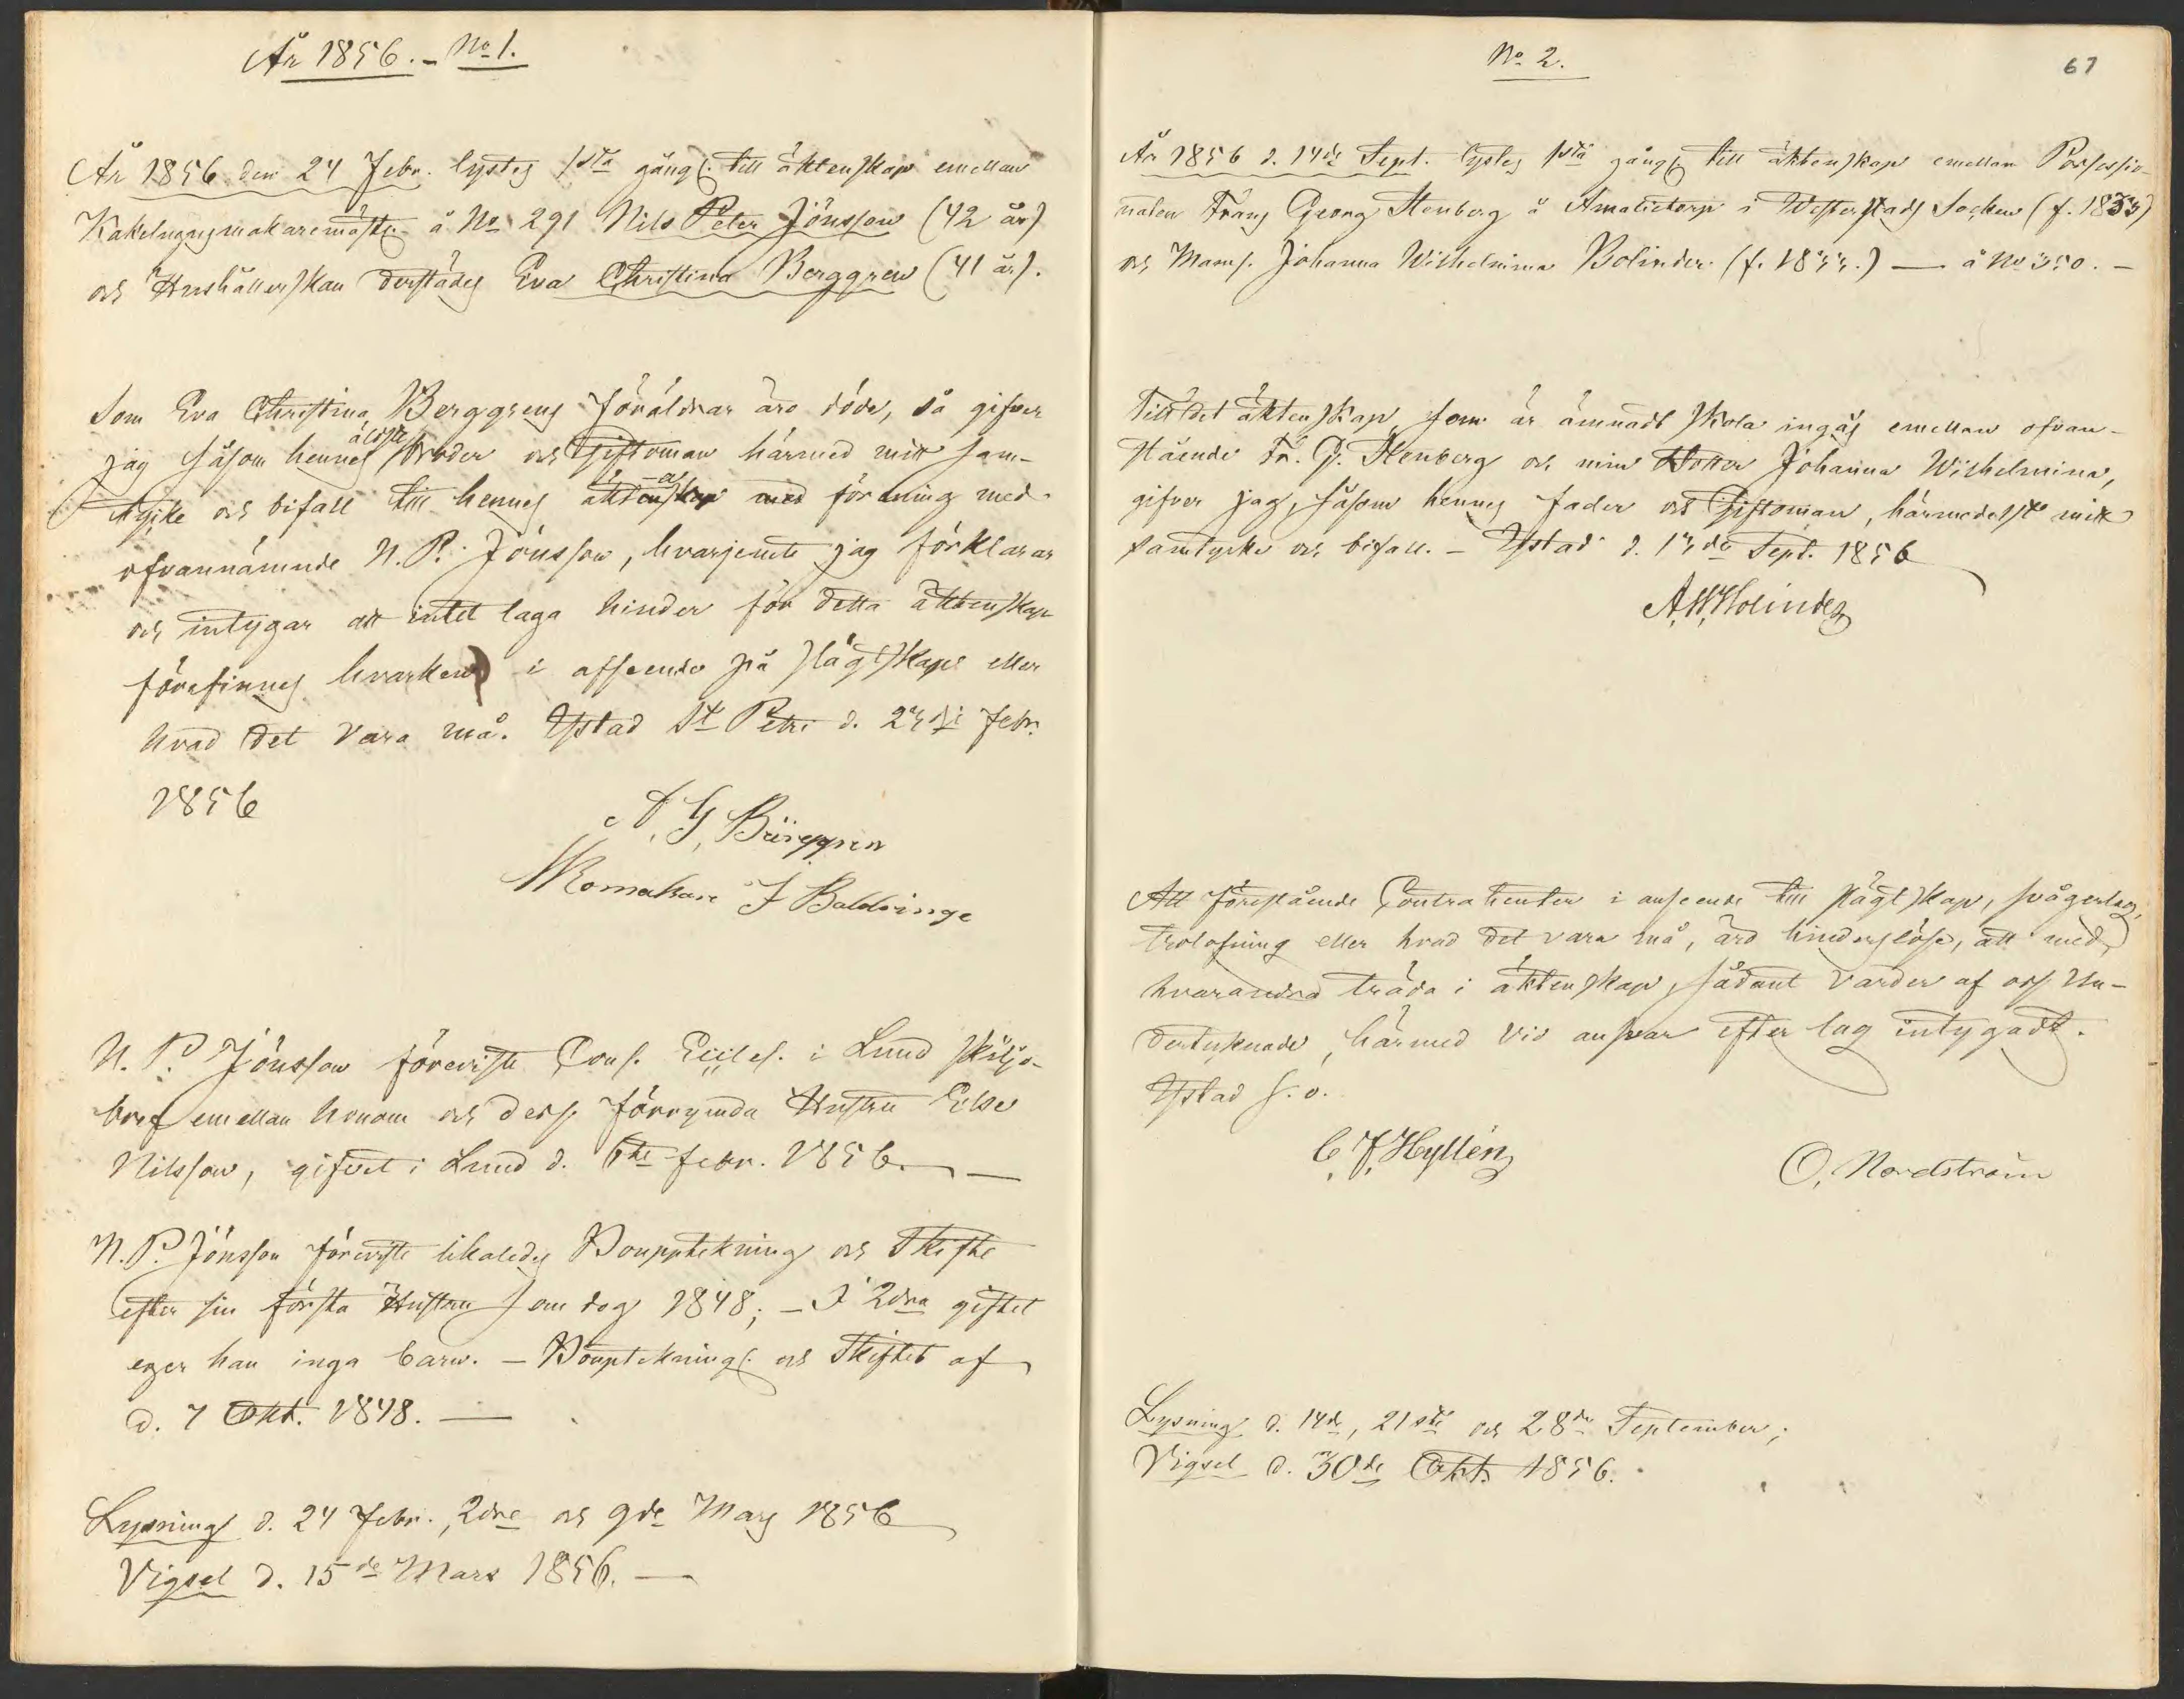 År 1856. - No 1.
År 1856 den 24 Febr. lystes 1sta gångs till äktenskap emellan
Kakelugnsmakaremästr. å No 291 Nils Peter Jönsson (42 år)
och Hushållerskan derstädes Eva Christina Berggren (41 år).
Som Eva Christina Berggrens föräldrar äro döde, så gifver
äldste
jag såsom hennes broder och Giftoman härmed mitt sam-
tycke och bifall till hennes äktenskap med förening med
ofvannämnde N. P. Jönsson, hvarjemte jag förklarar
och intygar att intet laga hinder för detta äktenskap
förefinnes hvarken i afseende på slägtskap eller
hvad det vara må. Ystad St Petri d. 23 Febr.
1856
A. G. Bärggren
J Baldringe
N. P. Jönsson föreviste Cons. Eccles. i Lund skiljo-
bref emellan honom och dess förrymda Hustru Else
Nilsson, gifvet i Lund d. 6te Febr. 1856. —
N. P. Jönsson föreviste likaledes Bouppteckning och Skifte
efter sin första Hustru som dog 1848; - I 2dra giftet
eger han inga barn. — Bouptekning. och Skiftet af
d. 7 Okt. 1848. —
Lysning d. 24 Febr., 2dre och 9de Mars 1856
Vigsel d. 15de Mars 1856. —
No 2.
67
År 1856 d. 14de Sept. lystes 1sta gångs till äktenskap emellan Possessio-
naten Frans Georg Stenberg å Amalietorp i Westerstads Socken (f. 1833)
och Mams. Johanna Wilhelmina Bolinder (f. 1835.) — å No 350. -
Till det äktenskap, som är ämnadt skola ingås emellan ofvan-
stående Fr. G. Stenberg och min Dotter Johanna Wilhelmina,
gifver jag, såsom hennes fader och Giftoman, härmedelst mitt
samtycke och bifall. - Ystad d. 13de Sept. 1856
A. W. Bolinder
Att förestående Contrahenter i anseende till slägtskap, svågerlag,
trolofning eller hvad det vara må, äro hinderslöse, att med
hvarandra träda i äktenskap, sådant varder af oss Un-
dertecknade, härmed vid ansvar efter lag intygadt.
Ystad s. o.
C. F. Hyllén
O. Nordström
Lysning d. 14de, 21sta och 28de September;
Vigsel d. 30de Okt. 1856.